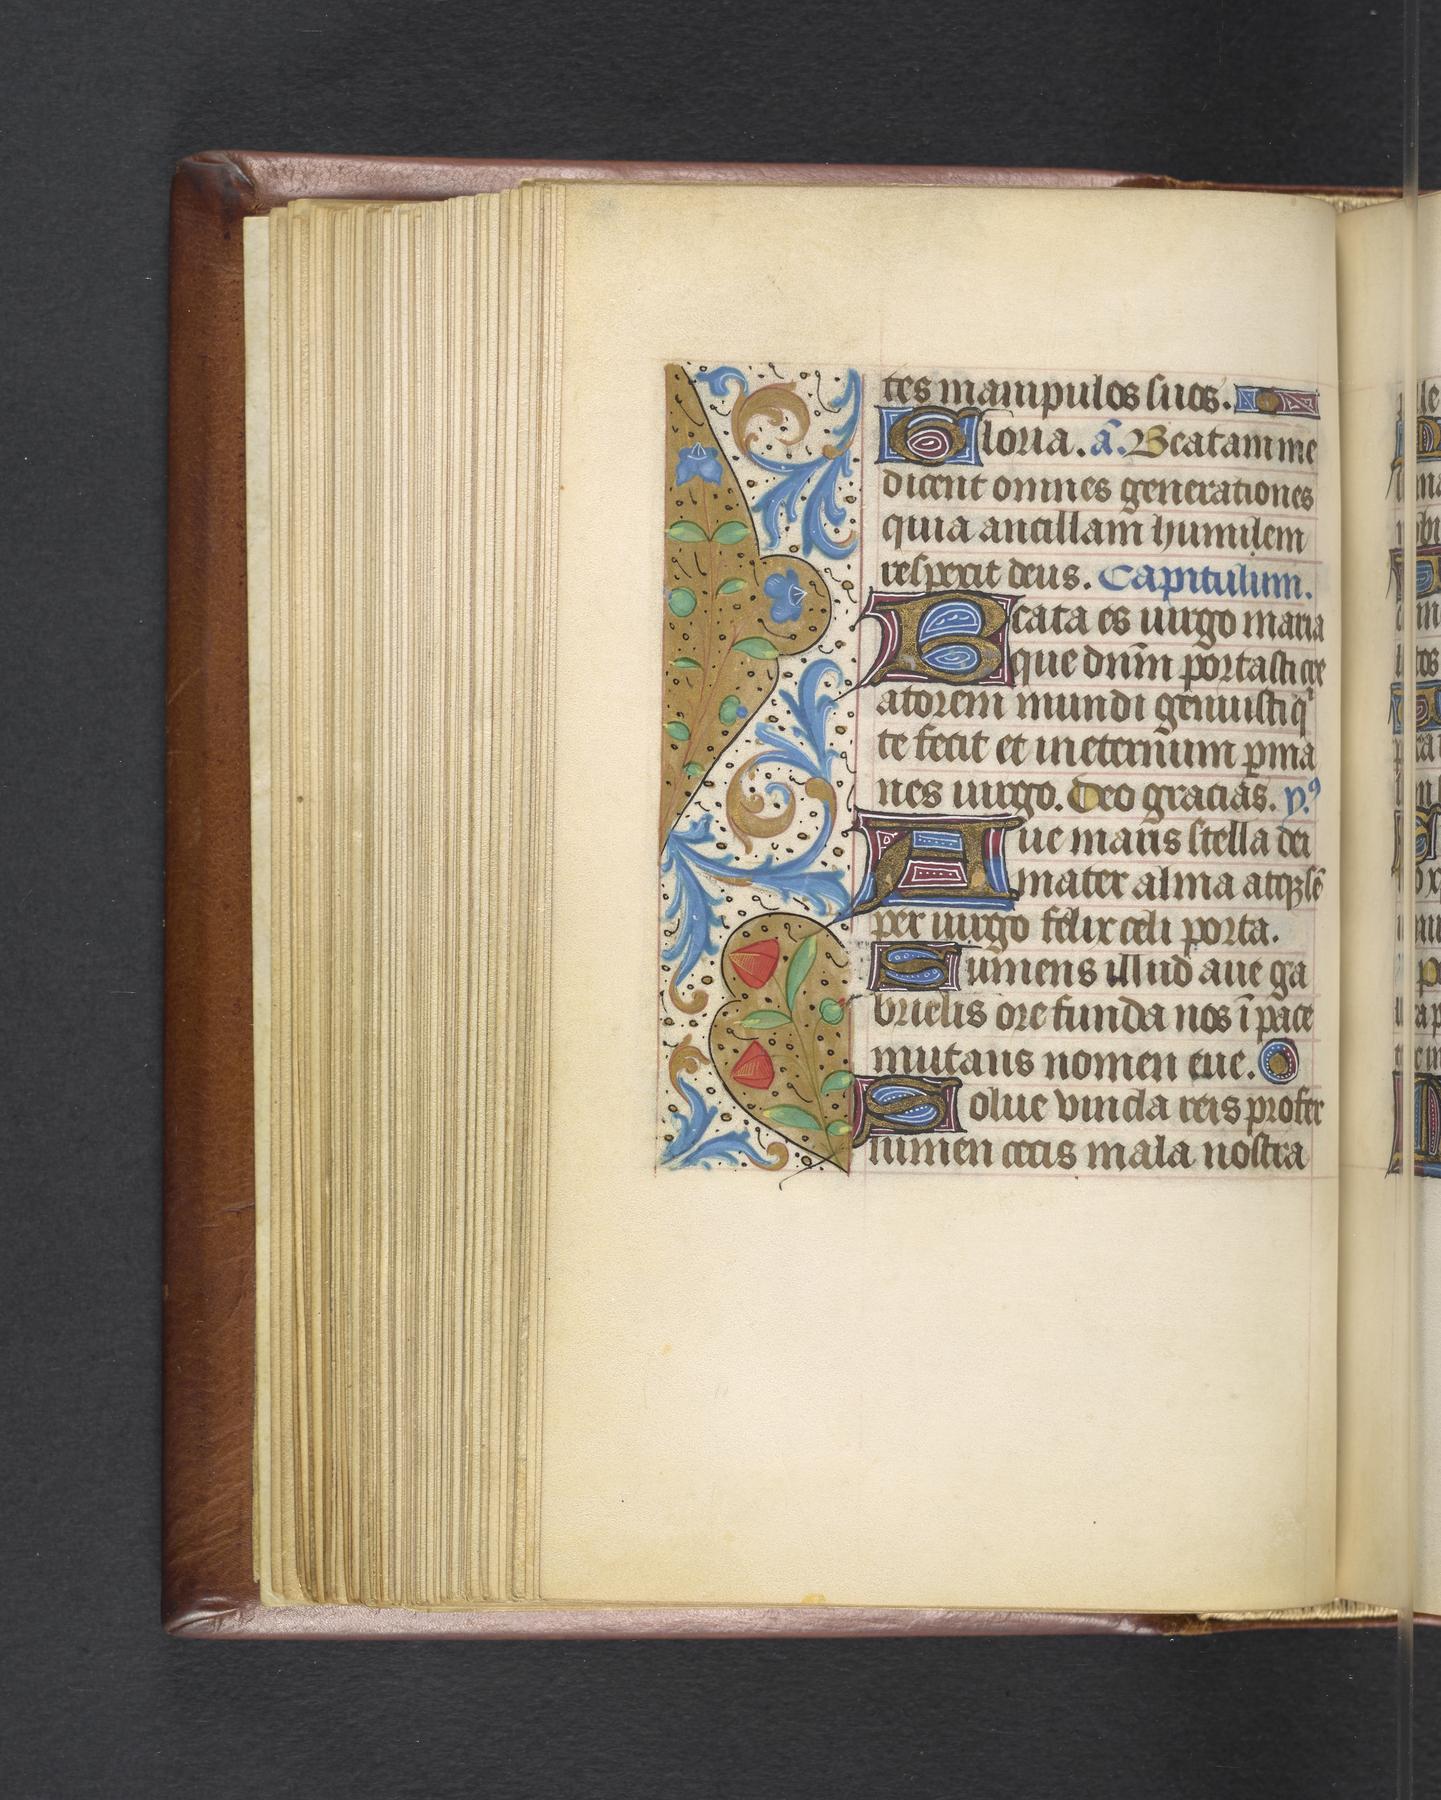 tes manipulos suos.
Gloria. ā. Beatam me
dicent omnes generationes
quia ancillam humilem
respexit deus. Capitulum.
Beata es uirgo maria
que dnm̄ portasti cre
atorem mundi genuisti qͥ
te fecit et in eternum ꝑma
nes uirgo. Deo gracias. yꝰ
Aue maris stella dei
mater alma atqꝫ sē
per uirgo felix celi porta.
Sumens illud aue ga
brielis ore funda nos ī pace
mutans nomen eue.
Solue vincla reis profer
lumen cecis mala nostra